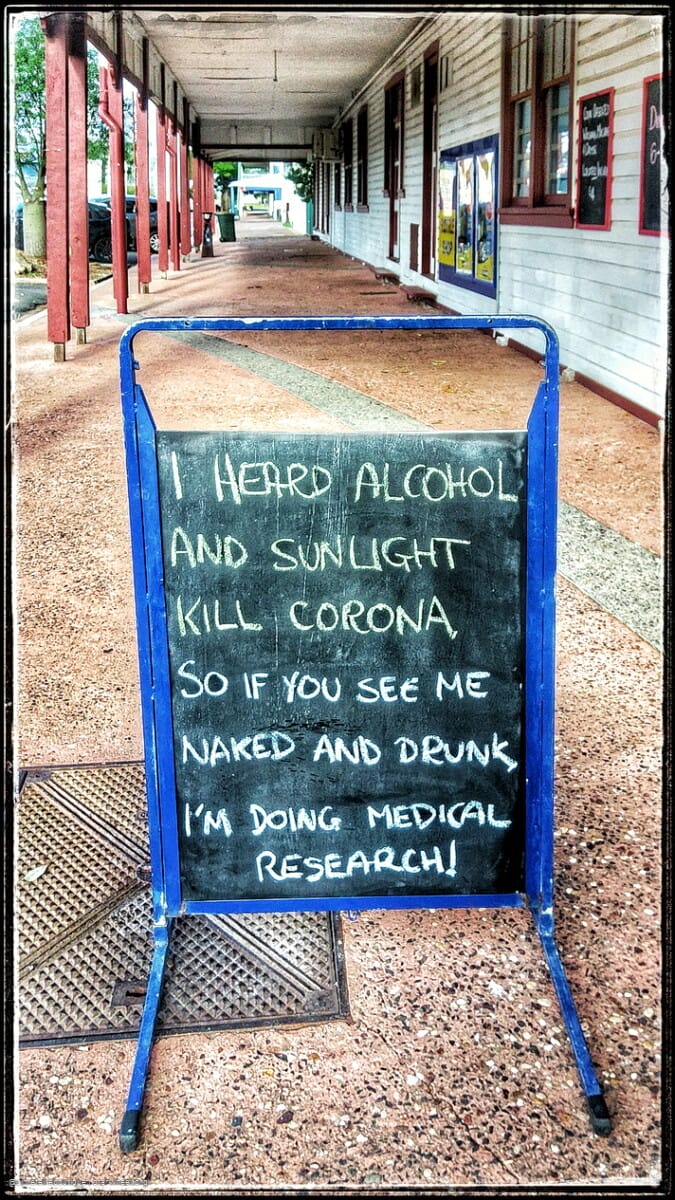 I HEARD ALCOHOL
AND SUNLIGHT
KILL CORONA,
SO IF YOU SEE ME
NAKED AND DRUNK,
I'M DOING MEDICAL
RESEARCH!